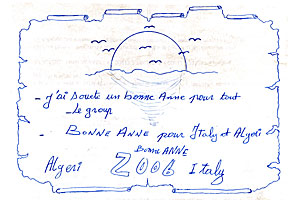 - j'ai soute un bonne Anne pour tout
- le group
- BONNE ANNE pour Italy et Algeri
Bonne ANNE
Algeri 2006 Italy